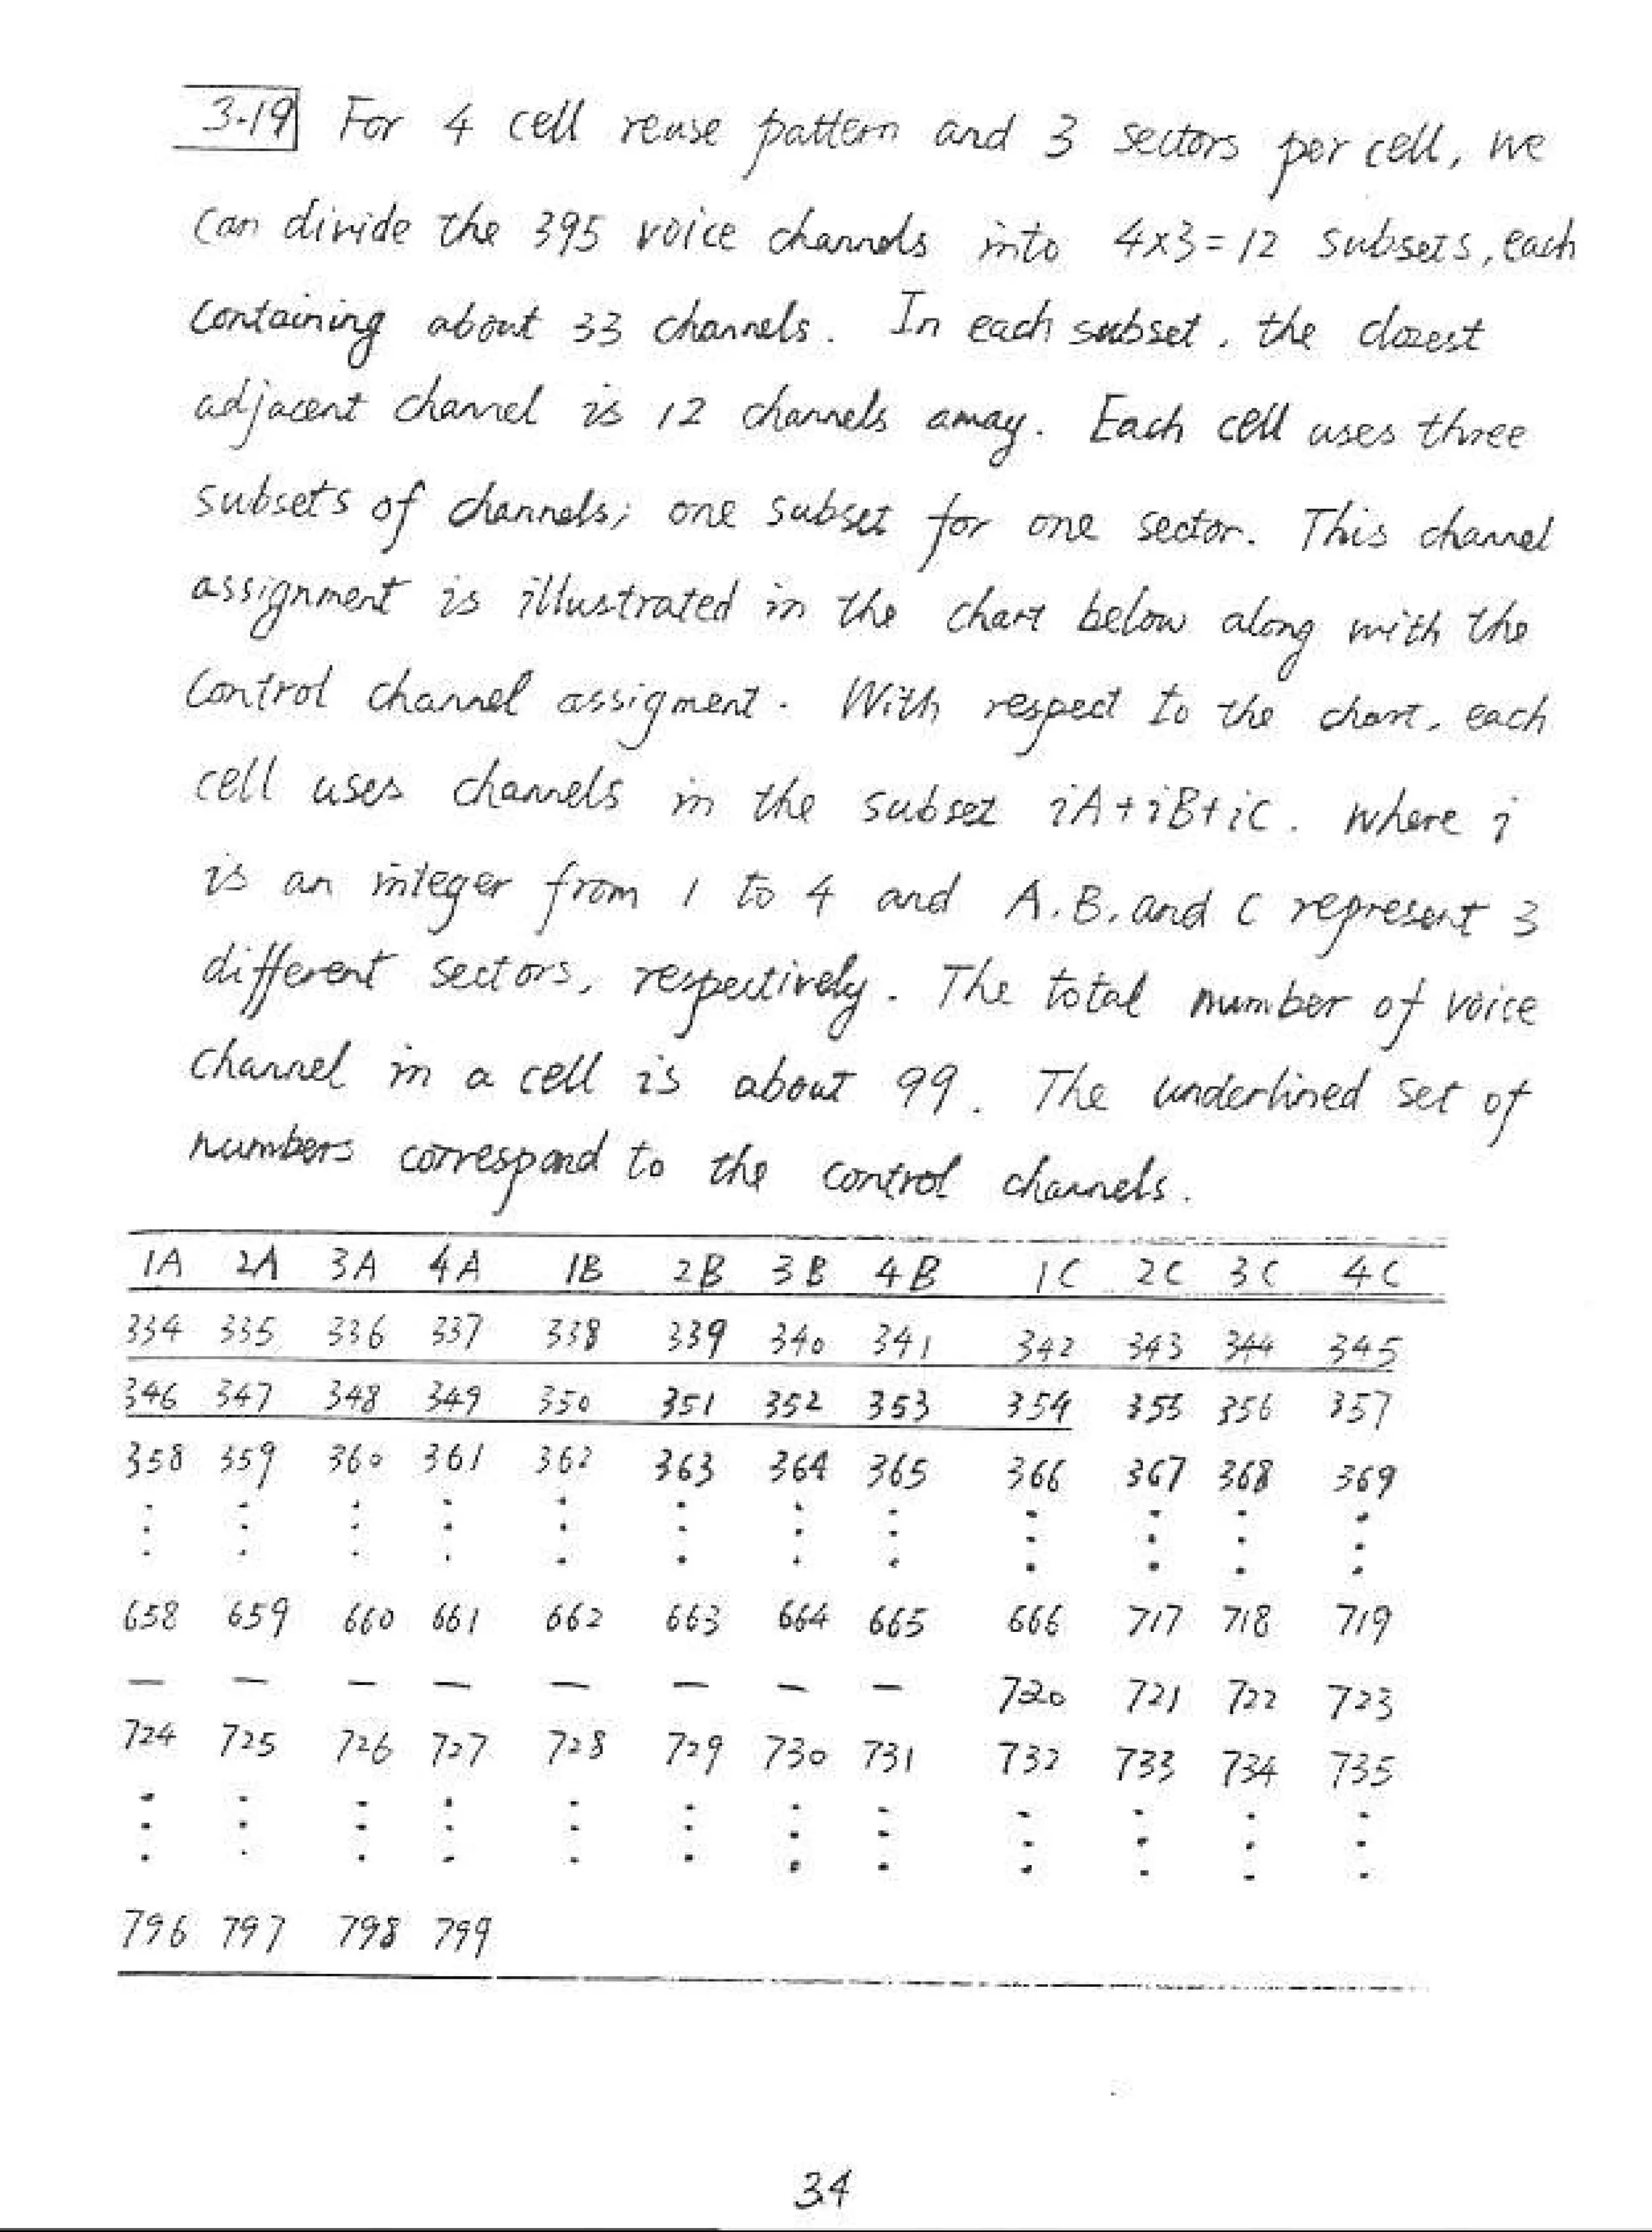 3-19 For 4 cell reuse pattern and 3 sectors per cell, we
can divide the 395 voice channels into 4x3=12 subsets, each
containing about 33 channels. In each subset, the closest
adjacent channel is 12 channels away. Each cell uses three
subsets of channels; one subset for one sector. This channel
assignment is illustrated in the chart below along with the
control channel assigment. With respect to the chart, each
cell uses channels in the subset iA+iB+iC. Where i
is an integer from 1 to 4 and A, B, and C represent 3
different sectors, respectively. The total number of voice
channel in a cell is about 99. The underlined set of
numbers correspond to the control channels.
1A 2A 3A 4A 1B 2B 3B 4B 1C 2C 3C 4C
334 335 336 337 338 339 340 341 342 343 344 345
346 347 348 349 350 351 352 353 354 355 356 357
358 359 360 361 362 363 364 365 366 367 368 369
658 659 660 661 662 663 664 665 666 717 718 719
— — — — — — — — 720 721 722 723
724 725 726 727 728 729 730 731 732 733 734 735
796 797 798 799
34